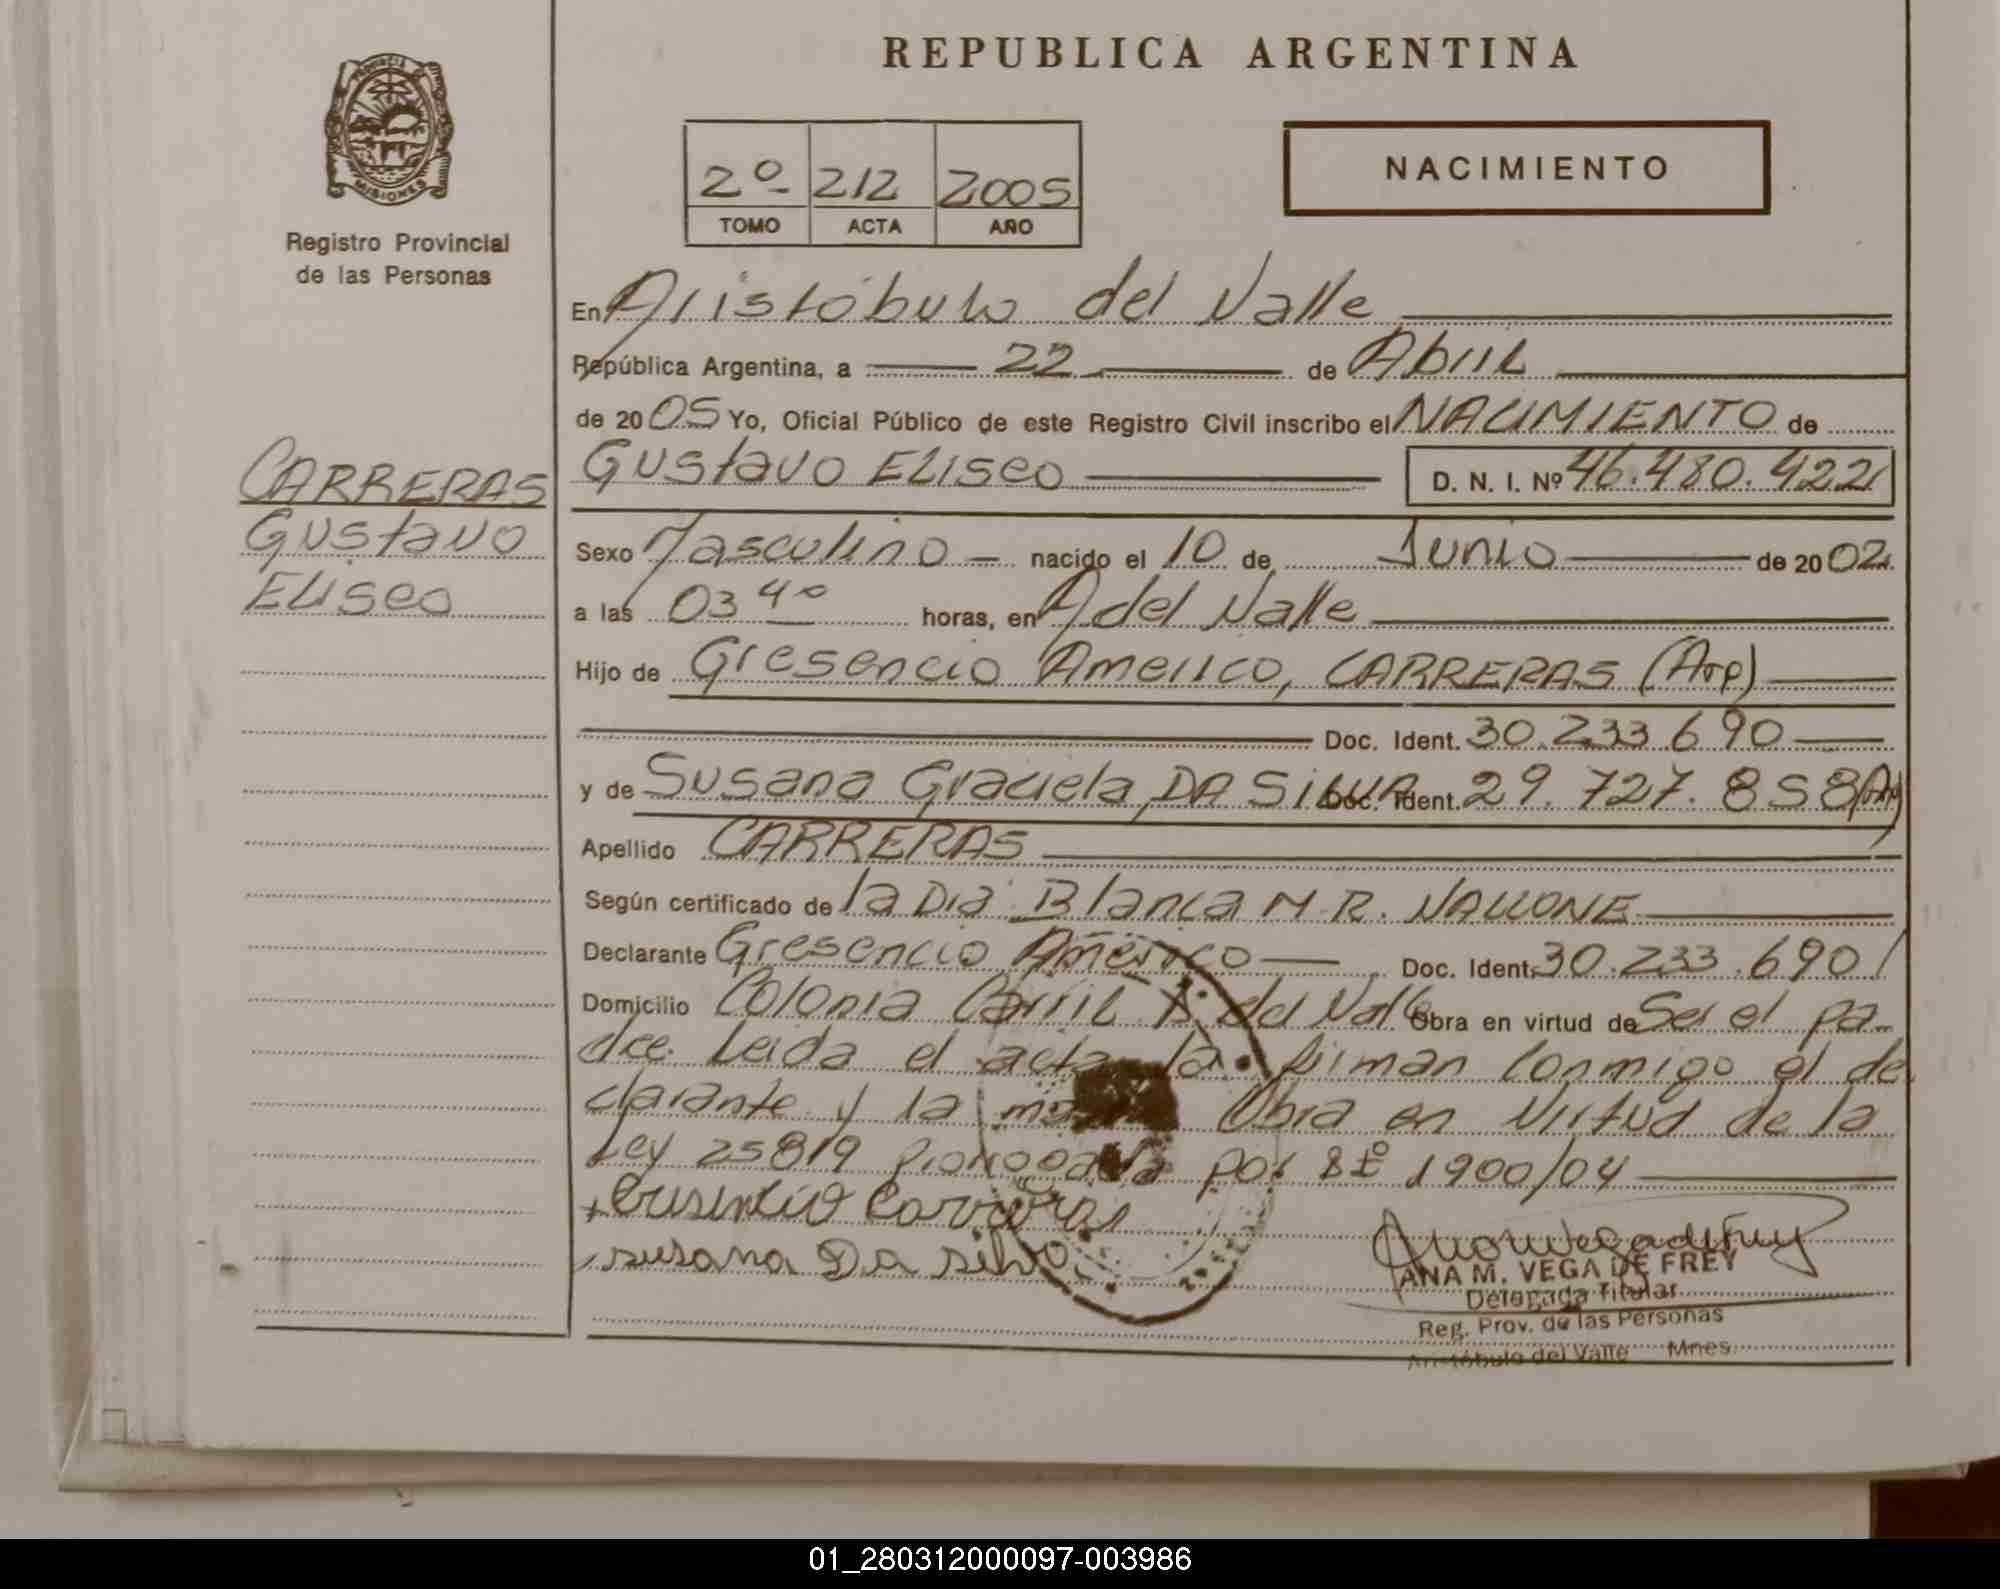 REPUBLICA ARGENTINA
PROVINCIA DE
MISIONES
Registro Provincial
de las Personas
2º 212 2005
TOMO ACTA AÑO
NACIMIENTO
En Aristóbulo del Valle
República Argentina, a 22 de Abril
de 2005 Yo, Oficial Público de este Registro Civil inscribo el NACIMIENTO de
CARRERAS
Gustavo
Eliseo
Gustavo Eliseo D. N. I. Nº 46.480.422
Sexo Masculino nacido el 10 de Junio de 2002
a las 03 40 horas, en A del Valle
Hijo de Gresencio Americo, CARRERAS (Arg)
Doc. Ident. 30.233.690
y de Susana Graciela, DA SILVA Doc. Ident. 29.727.858 (Arg)
Apellido CARRERAS
Según certificado de la Dra Blanca M. R. VALLONE
Declarante Gresencio Americo Doc. Ident. 30.233.690
Domicilio Colonia Carril A. del Valle Obra en virtud de Ser el pa-
dre. Leida el acta la firman conmigo el de
clarante y la Obra en virtud de la
Ley 25819 prorrogada por 1900/04
Carreras
susana Da silva
ANA M. VEGA DE FREY
Delegada Titular
Reg. Prov. de las Personas
Aristóbulo del Valle Mnes
01_280312000097-003986